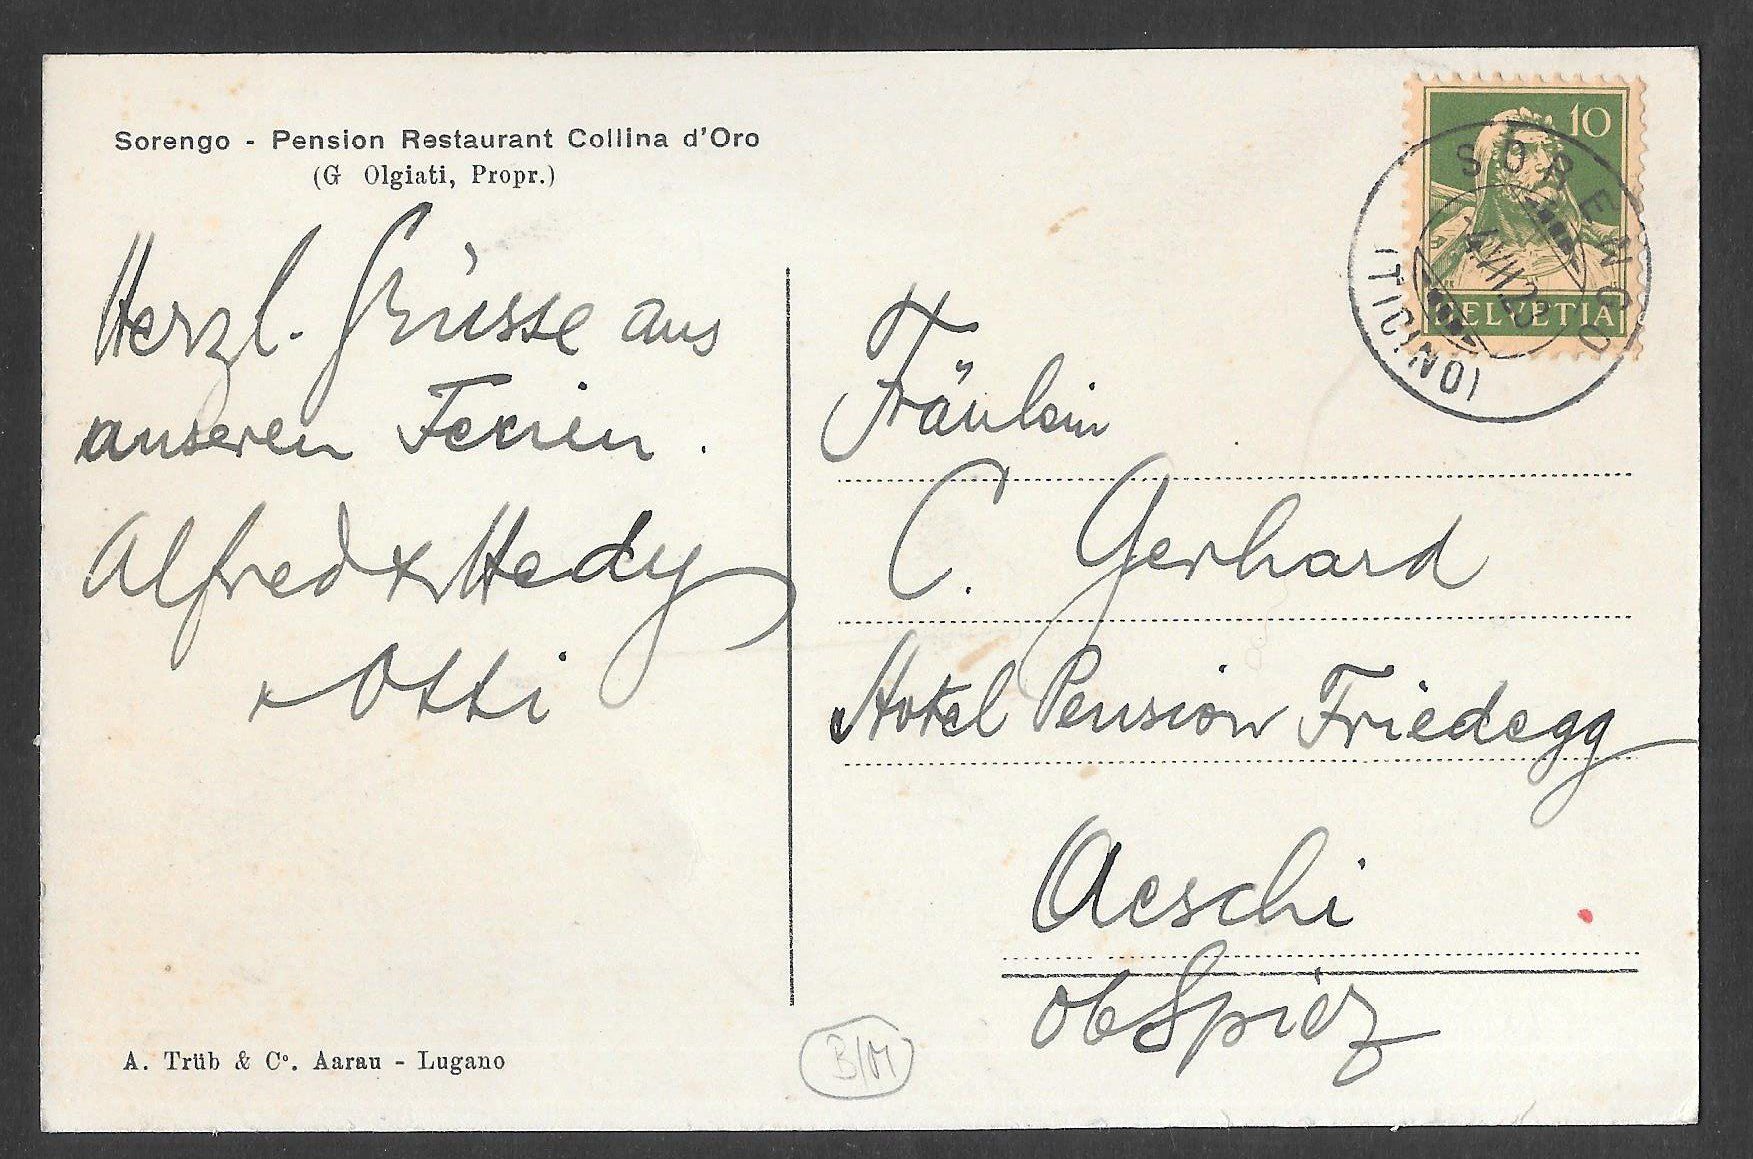 Sorengo - Pension Restaurant Collina d'Oro
(G Olgiati, Propr.)
Herzl. Grüsse aus
unseren Ferien.
Alfred + Hedy
+ Otti
A. Trüb & Cº. Aarau - Lugano
10
HELVETIA
SORENGO
(TICINO)
Fräulein
C. Gerhard
Hotel Pension Friedegg
Aeschi
ob Spiez
B/M